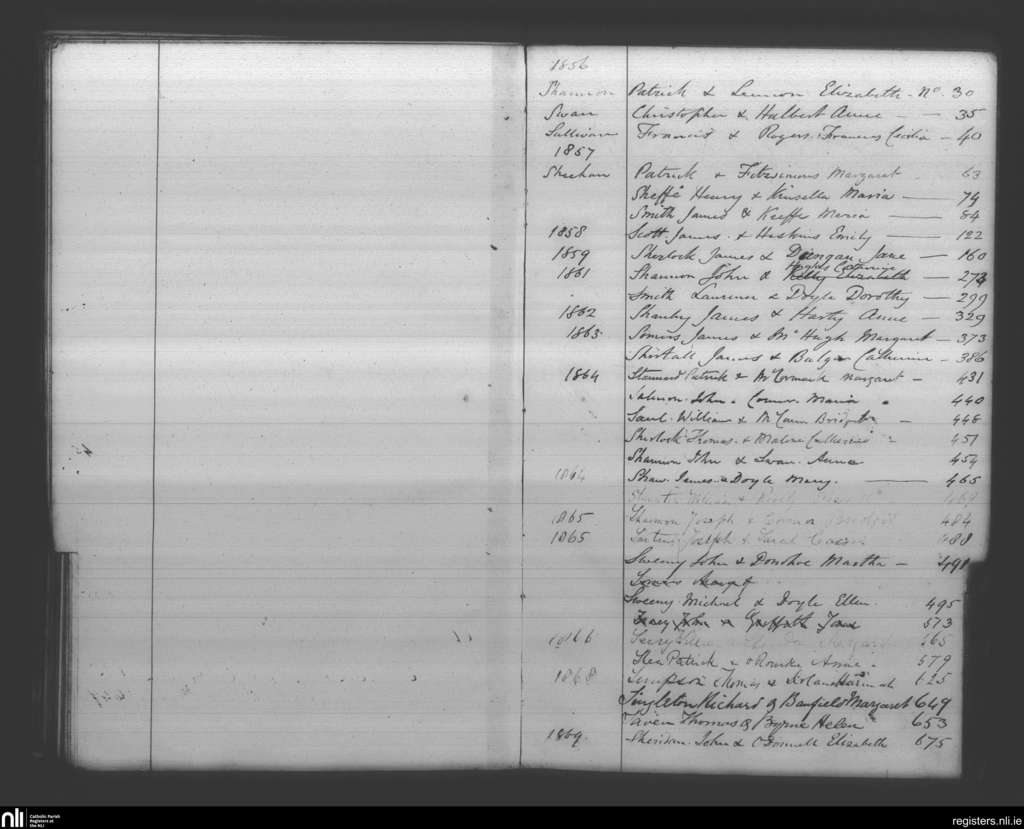 1856
Shannon Patrick & Lennon Elizabeth - No. 30
Swan Christopher & Halbert Anne - - 35
Sullivan Francis & Rogers Frances Cecilia - 40
1857
Sheehan Patrick & Fitzsimons Margaret 63
Sheffe Henry & Kinsella Maria - 74
Smith James & Keeffe Maria - 84
1858 Scott James & Hoskins Emily - 122
1859 Sherlock James & Dungan Jane - 160
1861 Shannon John & Kelly Elizabeth - 274
Catherine
Smith Laurence & Doyle Dorothy - 299
1862 Shanley James & Harty Anne - 329
1863 Somers James & McHugh Margaret - 373
Shortall James & Bulger Catherine - 386
1864 Stannard Patrick & McCormack Margaret - 431
Salmon John & Connor Maria 440
Saul William & McCann Bridget - 448
Sherlock Thomas & Malone Catherine - 451
Shannon John & Swan Anne 454
1864 Shaw James & Doyle Mary. - 465
William & 469
1865 Shannon Joseph & Connor Bridget 484
1865 Joseph & Sarah 488
Sweeny John & Donohoe Martha - 491
Sweeny Michael & Doyle Ellen. 495
John & Griffith Jane 573
1866 565
Shea Patrick & O'Rourke Annie. 579
1868 Simpson Thomas & Hannah 625
Singleton Richard & Banfield Margaret 649
Thomas & Byrne Helen 653
1869. Sheridan John & O'Donnell Elizabeth 675
nli Catholic Parish Registers at the NLI
registers.nli.ie